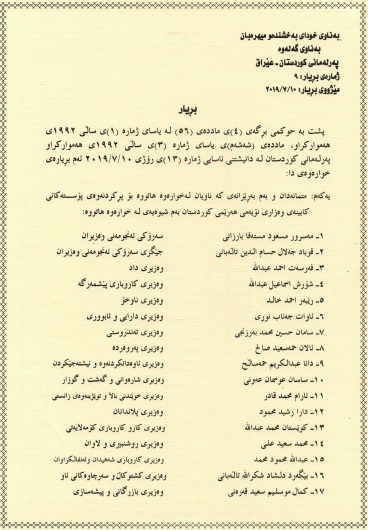 بەناوی خودای بەخشندەو میهرەبان
بەناوی گەلەوە
پەرلەمانی کوردستان - عێراق
ژمارەی بڕیار: ٩
مێژووی بڕیار: ٢٠١٩/٧/١٠
بڕیار
پشت بە حوکمی بڕگەی (٤)ی ماددەی (٥٦) لە یاسای ژمارە (١)ی ساڵی ١٩٩٢ی
هەموارکراو، ماددەی (شەشەم)ی یاسای ژمارە (٣)ی ساڵی ١٩٩٢ی هەموارکراو
پەرلەمانی کوردستان لە دانیشتنی ئاسایی ژمارە (١٣)ی ڕۆژی ٢٠١٩/٧/١٠ ئەم بڕیارەی
خوارەوەی دا:
یەکەم: متمانەدان و بەم بەڕێزانەی کە ناویان لەخوارەوە هاتووە بۆ پڕکردنەوەی پۆستەکانی
کابینەی وەزاری نۆیەمی هەرێمی کوردستان بەم شێوەیەی لە خوارەوە هاتووە:
١- مەسرور مسعود مستەفا بارزانی سەرۆکی ئەنجومەنی وەزیران
٢- قوباد جەلال حسام الدین تاڵەبانی جێگری سەرۆکی ئەنجومەنی وەزیران
٣- فەرسەت احمد عبداللە وەزیری داد
٤- شۆڕش اسماعیل عبداللە وەزیری کاروباری پێشمەرگە
٥- ڕێبەر احمد خالد وەزیری ناوخۆ
٦- ئاوات جەناب نوری وەزیری دارایی و ئابووری
٧- سامان حسین محمد بەرزنجی وەزیری تەندروستی
٨- ئالان حمەسعید صالح وەزیری پەروەردە
٩- دانا عبدالکریم حمەصالح وەزیری ئاوەدانکردنەوە و نیشتەجێکردن
١٠- ساسان عوسمان عەونی وەزیری شارەوانی و گەشت و گوزار
١١- ئارام محمد قادر وەزیری خوێندنی باڵا و توێژینەوەی زانستی
١٢- دارا رشید محمود وەزیری پلاندانان
١٣- کوێستان محمد عبداللە وەزیری کارو کاروباری کۆمەڵایەتی
١٤- محمد سعید علی وەزیری ڕۆشنبیری و لاوان
١٥- عبداللە محمود محمد وەزیری کاروباری شەهیدان وئەنفالکراوان
١٦- بێگەرد دلشاد شکراللە تاڵەبانی وەزیری کشتوکاڵ و سەرچاوەکانی ئاو
١٧- کمال موسلیم سعید قەرەنی وەزیری بازرگانی و پیشەسازی